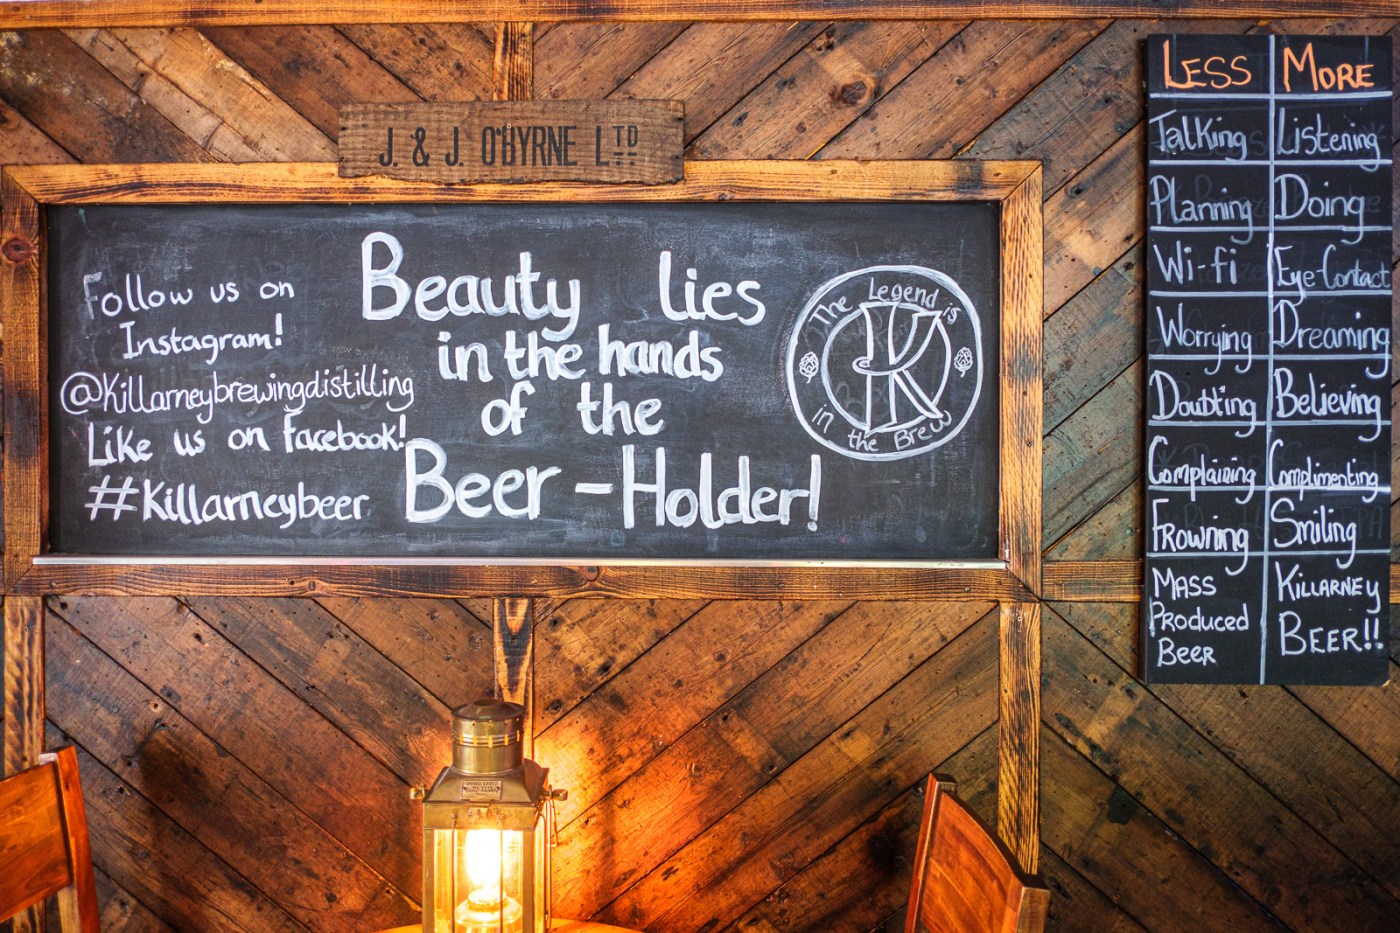 J. & J. O'BYRNE LTD
Follow us on
Instagram!
@Killarneybrewingdistilling
Like us on facebook!
#Killarneybeer
Beauty lies
in the hands
of the
Beer-Holder!
The Legend is
K
in the Brew
LESS MORE
Talking Listening
Planning Doing
Wi-fi Eye-Contact
Worrying Dreaming
Doubting Believing
Complaining Complimenting
Frowning Smiling
MASS
PRoduced
BeeR
KILLARNEY
BEER!!